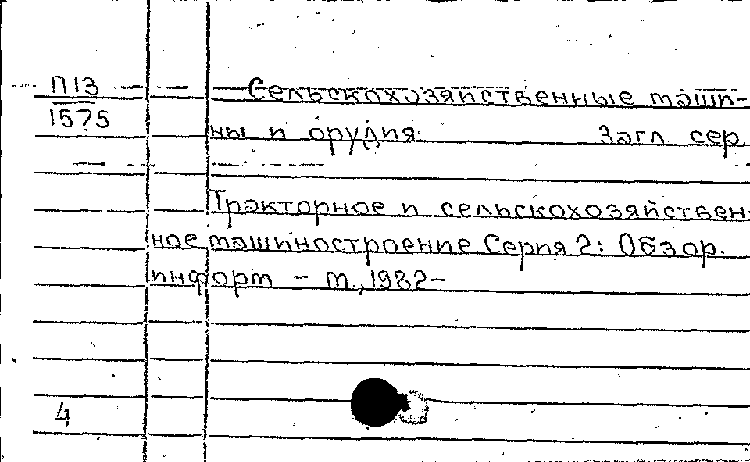 П13 Сельскохозяйственные маши-
1575
ны и орудия. Загл. сер.
Тракторное и сельскохозяйствен-
ное машиностроение. Серия 2: Обзор.
информ. – М., 1982–
4